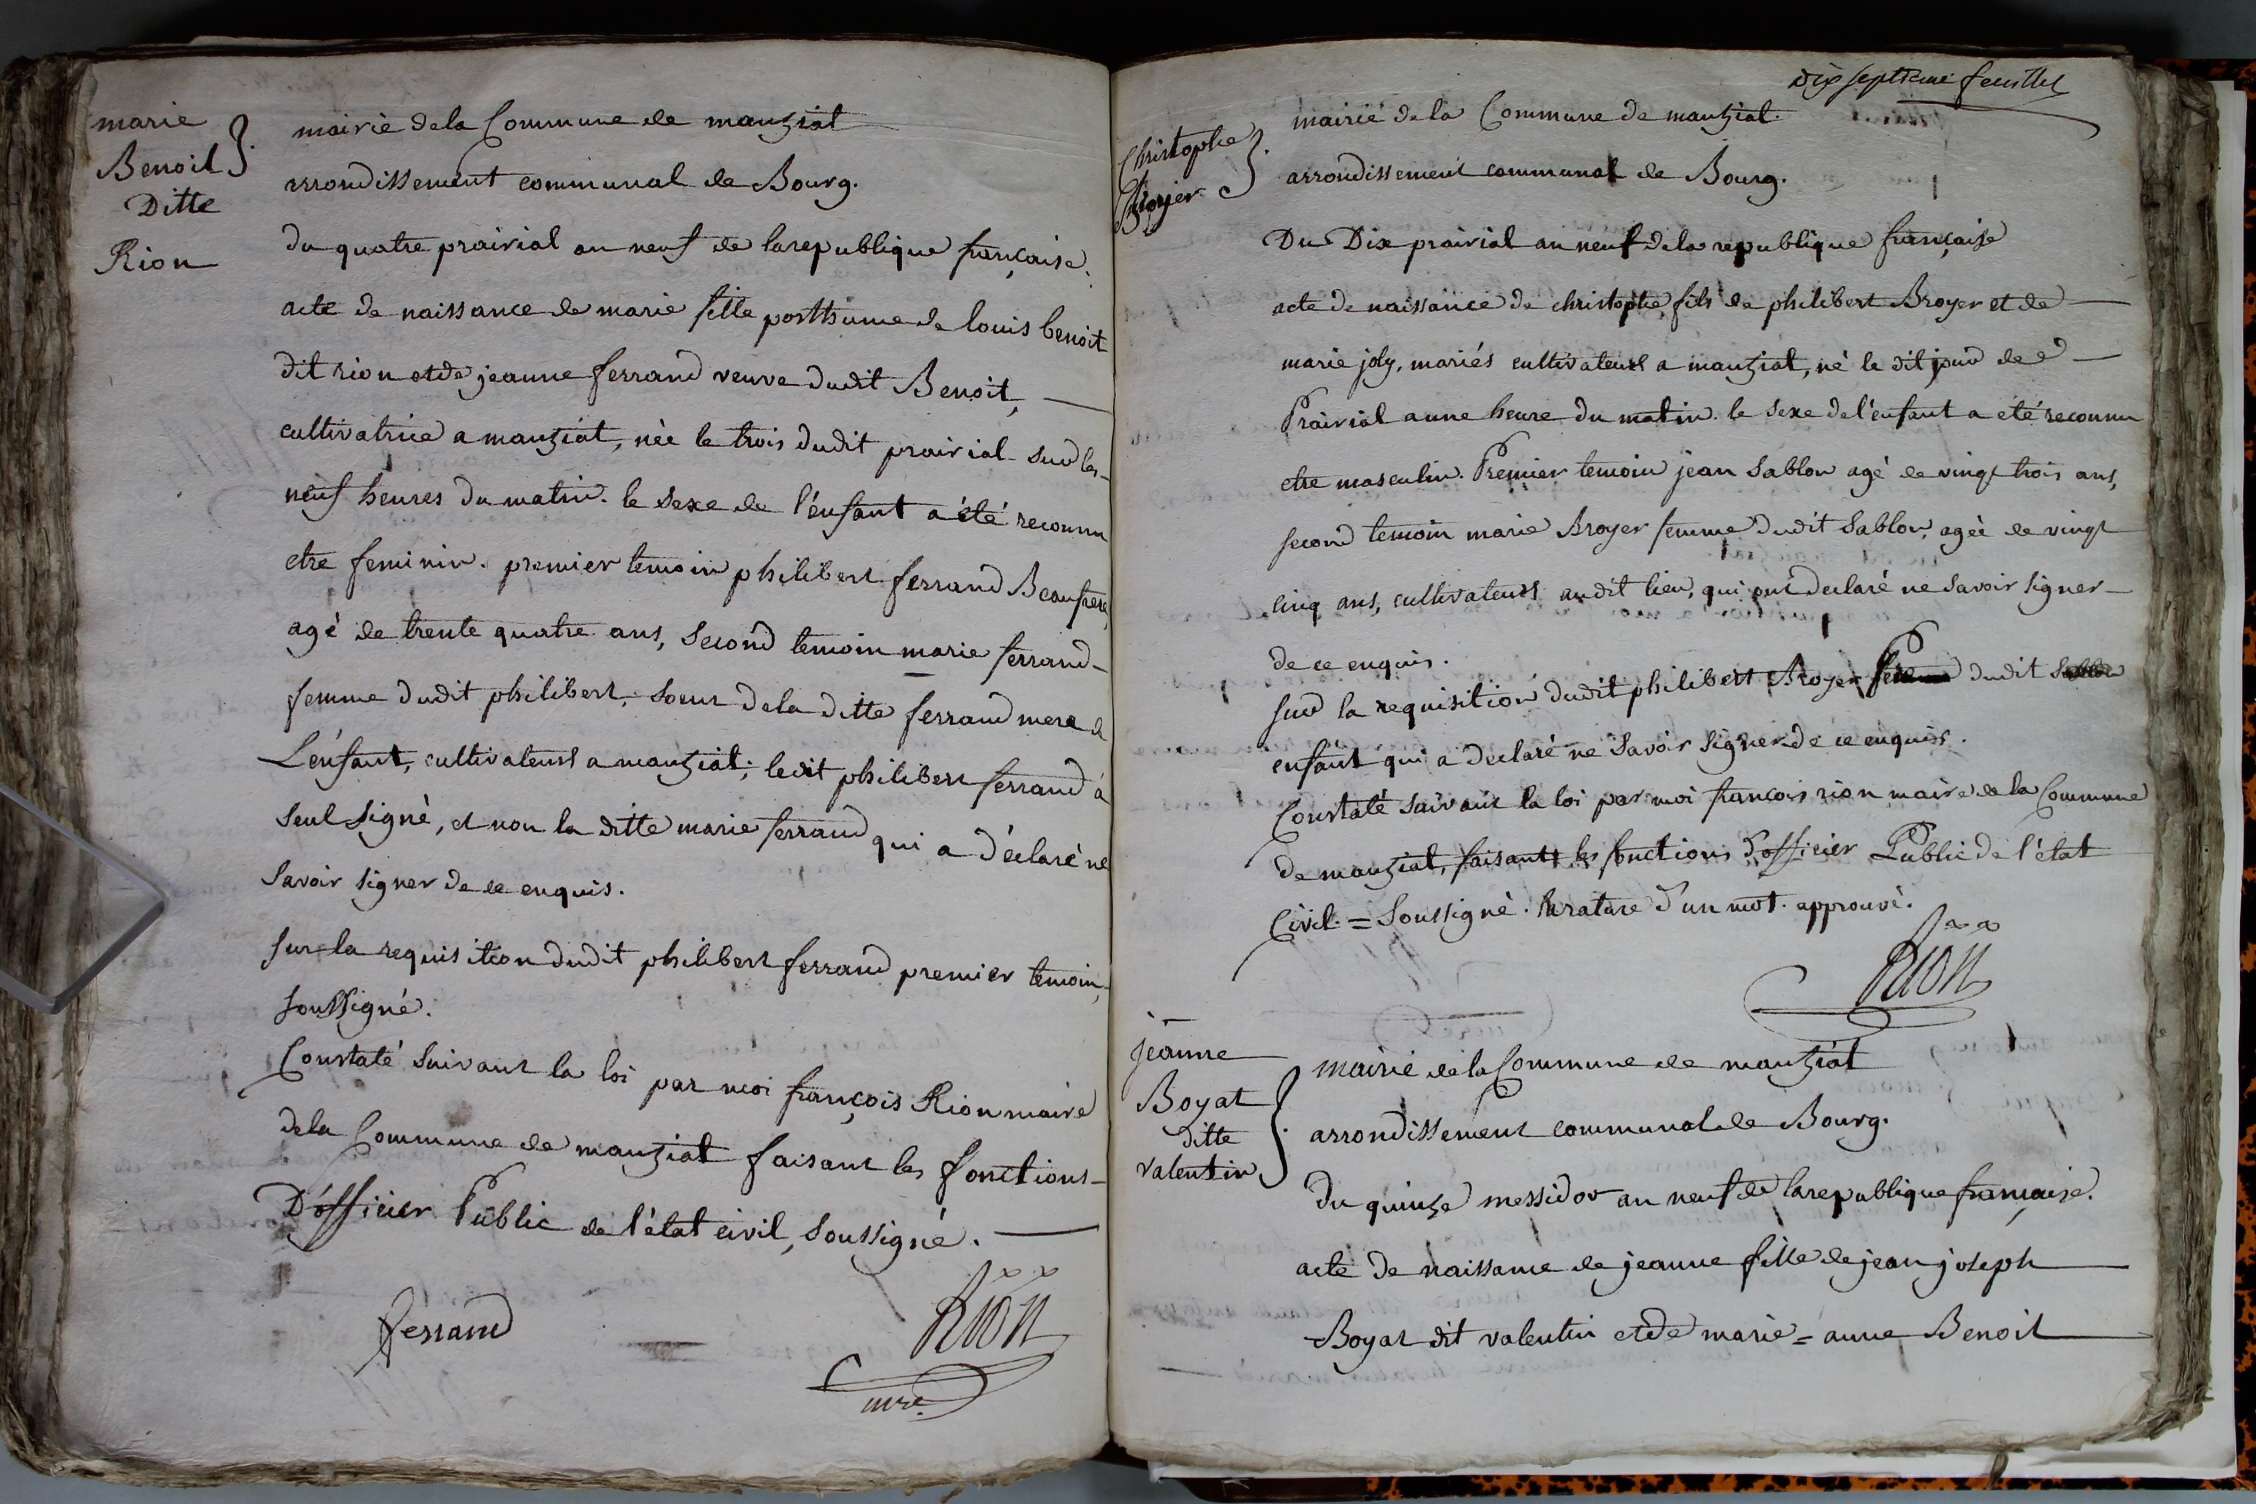 marie
Benoit
Ditte
Rion
mairie dela Commune de manziat
arrondissement communal de Bourg.
du quatre prairial an neuf de larepublique française.
acte de naissance de marie fille posthume de louis benoit
dit rion etde jeanne ferrand veuve dudit Benoit,
cultivatrice a manziat, née le trois dudit prairial sur les
neuf heures du matin. le sexe de l'enfant a été reconnu
etre feminin. premier temoin philibert ferrand Beaufrere,
agé de trente quatre ans, second temoin marie ferrand
femme dudit philibert, soeur dela ditte ferrand mere de
L'enfant, cultivateurs a manziat; ledit philibert ferrand a
seul signé, et non la ditte marie ferrand qui a déclaré ne
savoir signer de ce enquis.
sur la requisition dudit philibert ferrand premier temoin,
soussigné.
Constaté suivant la loi par moi françois Rion maire
dela Commune de manziat faisant les fonctions
D'officier Public de l'état civil, soussigné.
ferrand
Rion
mre
dix septieme feuillet
Christophe
Broyer
mairie de la Commune de manziat.
arrondissement communal de Bourg.
Du Dix prairial an neuf dela republique française
acte de naissance de christophe, fils de philibert Broyer et de
marie joly, mariés cultivateurs a manziat, né le dit jour de
Prairial a une heure du matin. le sexe de l'enfant a eté reconnu
etre masculin. Premier temoin jean Sablon agé de vingt trois ans,
second temoin marie Broyer femme dudit Sablon, agée de vingt
cinq ans, cultivateurs audit lieu, qui ont declaré ne savoir signer
de ce enquis.
sur la requisition dudit philibert Broyer Pere dudit
enfant qui a declaré ne savoir signer de ce enquis.
Constaté suivant la loi par moi françois rion maire de la Commune
de manziat, faisant les fonctions d'officier Public de l'état
Civil = Soussigné. la rature d'un mot approuvé.
Rion
jeanne
Boyat
ditte
valentin
mairie de la Commune de manziat
arrondissement communal de Bourg.
du quinze messidor an neuf de larepublique française.
acte de naissance de jeanne fille de jean joseph
Boyat dit valentin etde marie = anne Benoit